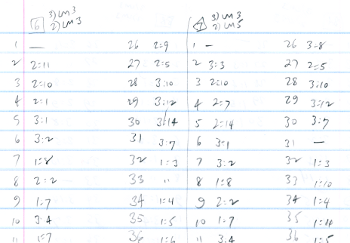 3) LM 3 3) LM 3
6 2) LM 3 7 2) LM 5
1 — 26 2:9 1 — 26 3:8
2 2:11 27 2:5 2 3:3 27 2:5
3 2:10 28 3:10 3 2:10 28 3:10
4 2:1 29 3:12 4 2:7 29 3:12
5 3:1 30 3:14 5 2:14 30 3:7
6 3:2 31 3:7 6 3:1 31 —
7 1:8 32 1:3 7 3:2 32 1:3
8 2:2 33 " 8 1:8 33 1:10
9 1:7 34 1:4 9 2:2 34 1:9
10 3:4 35 1:5 10 1:7 35 1:4
11 1:7 36 1:6 11 3:4 36 1:5